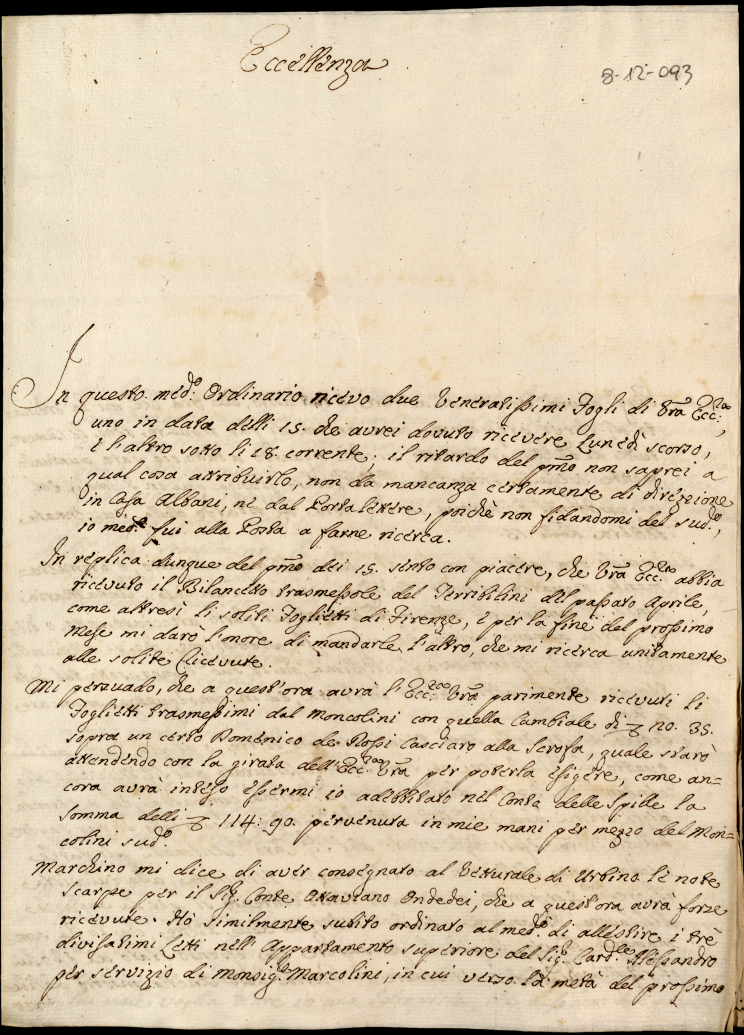 Eccellenza
8-12-093
In questo med.º Ordinario ricevo due Veneratissimi Fogli di Vrã Ecc.za,
uno in data delli 15. che aurei dovuto ricevere Lunedì scorso,
e l'altro sotto li 18. corrente; il ritardo del pmõ non saprei a
qual cosa attribuirlo, non da mancanza certamente di direzzione
in Casa Albani, nè dal Portalettere, poichè non fidandomi del sud.º,
io med.º fui alla Posta a farne ricerca.
In replica dunque del pmõ dei 15. sento con piacere, che Vrã Ecc.za abbia
ricevuto il Bilancetto trasmessole del Terribilini del passato Aprile,
come altresì li soliti Foglietti di Firenze, e per la fine del prossimo
Mese mi darò l'onore di mandarle l'altro, che mi ricerca unitamente
alle solite Ricevute.
Mi persuado, che a quest'ora avrà l'Ecc.za Vrã parimente ricevuti li
Foglietti trasmessimi dal Moncolini con quella Cambiale di no. 35.
sopra un certo Domenico de Rossi Casciaro alla Scrofa, quale starò
attendendo con la girata dell'Ecc.za Vrã per poterla esigere, come an=
cora avrà inteso essermi io adebbitato nel Conto delle Spille la
somma delli 114: 90. pervenuta in mie mani per mezzo del Mon=
colini sud.º
Marchino mi dice di aver consegnato al Vetturale di Urbino le note
scarpe per il Sig. Conte Ottaviano Ondedei, che a quest'ora avrà forze
ricevute. Hò similmente subito ordinato al med.º di allestire i trè
divisatimi Letti nell'Appartamento superiore del Sig. Card.le Alessandro
per servizio di Monsig.re Marcolini, in cui verso la metà del prossimo